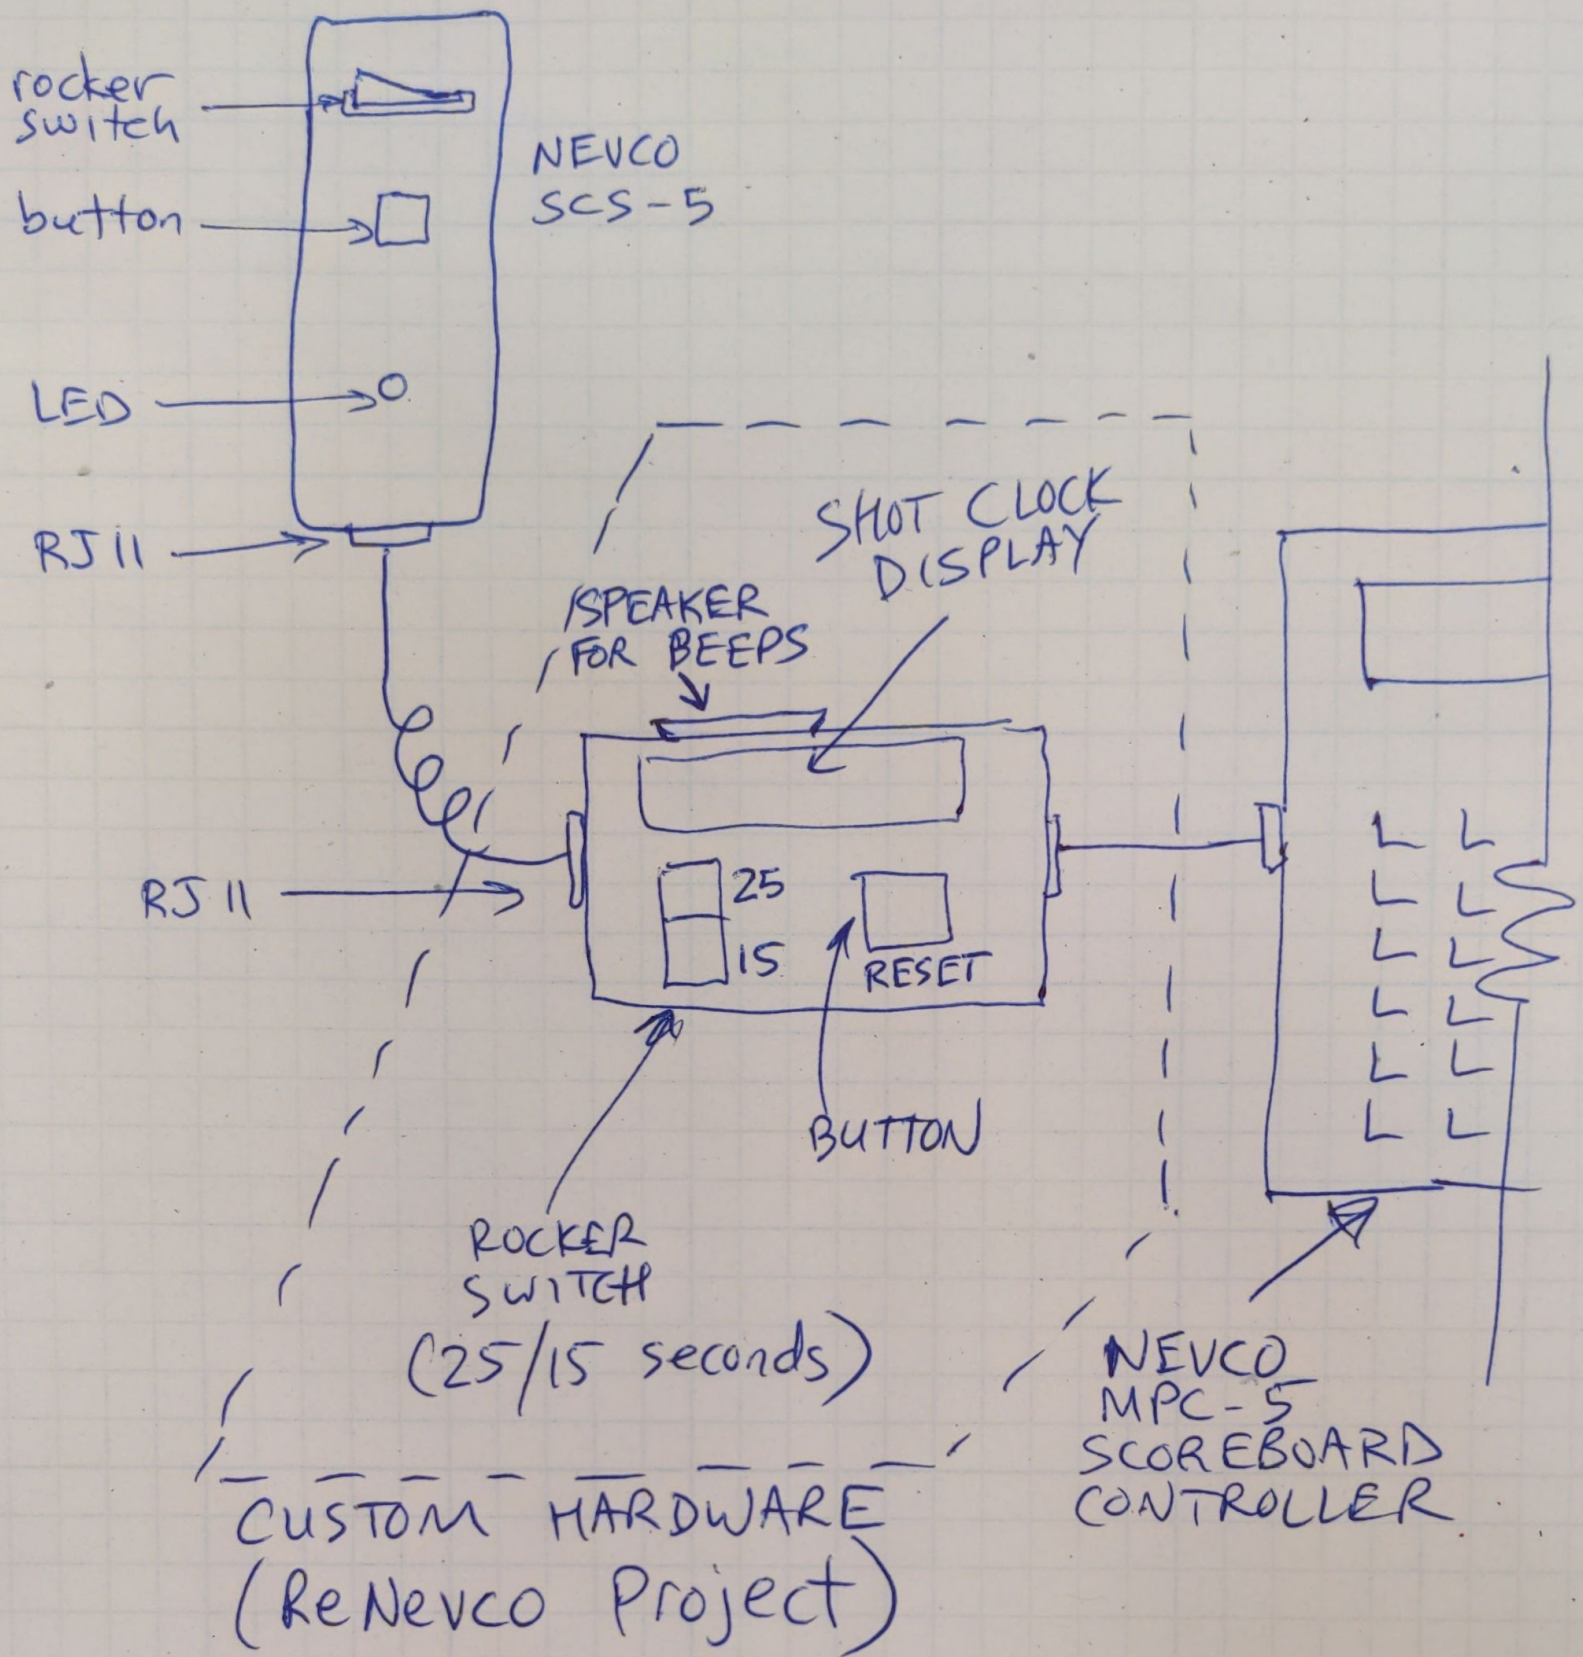 rocker
switch
NEVCO
SCS-5
button
LED
RJ11
SHOT CLOCK
DISPLAY
SPEAKER
FOR BEEPS
RJ11
25
15
RESET
BUTTON
ROCKER
SWITCH
(25/15 seconds)
NEVCO
MPC-5
SCOREBOARD
CONTROLLER
CUSTOM HARDWARE
(ReNevco Project)